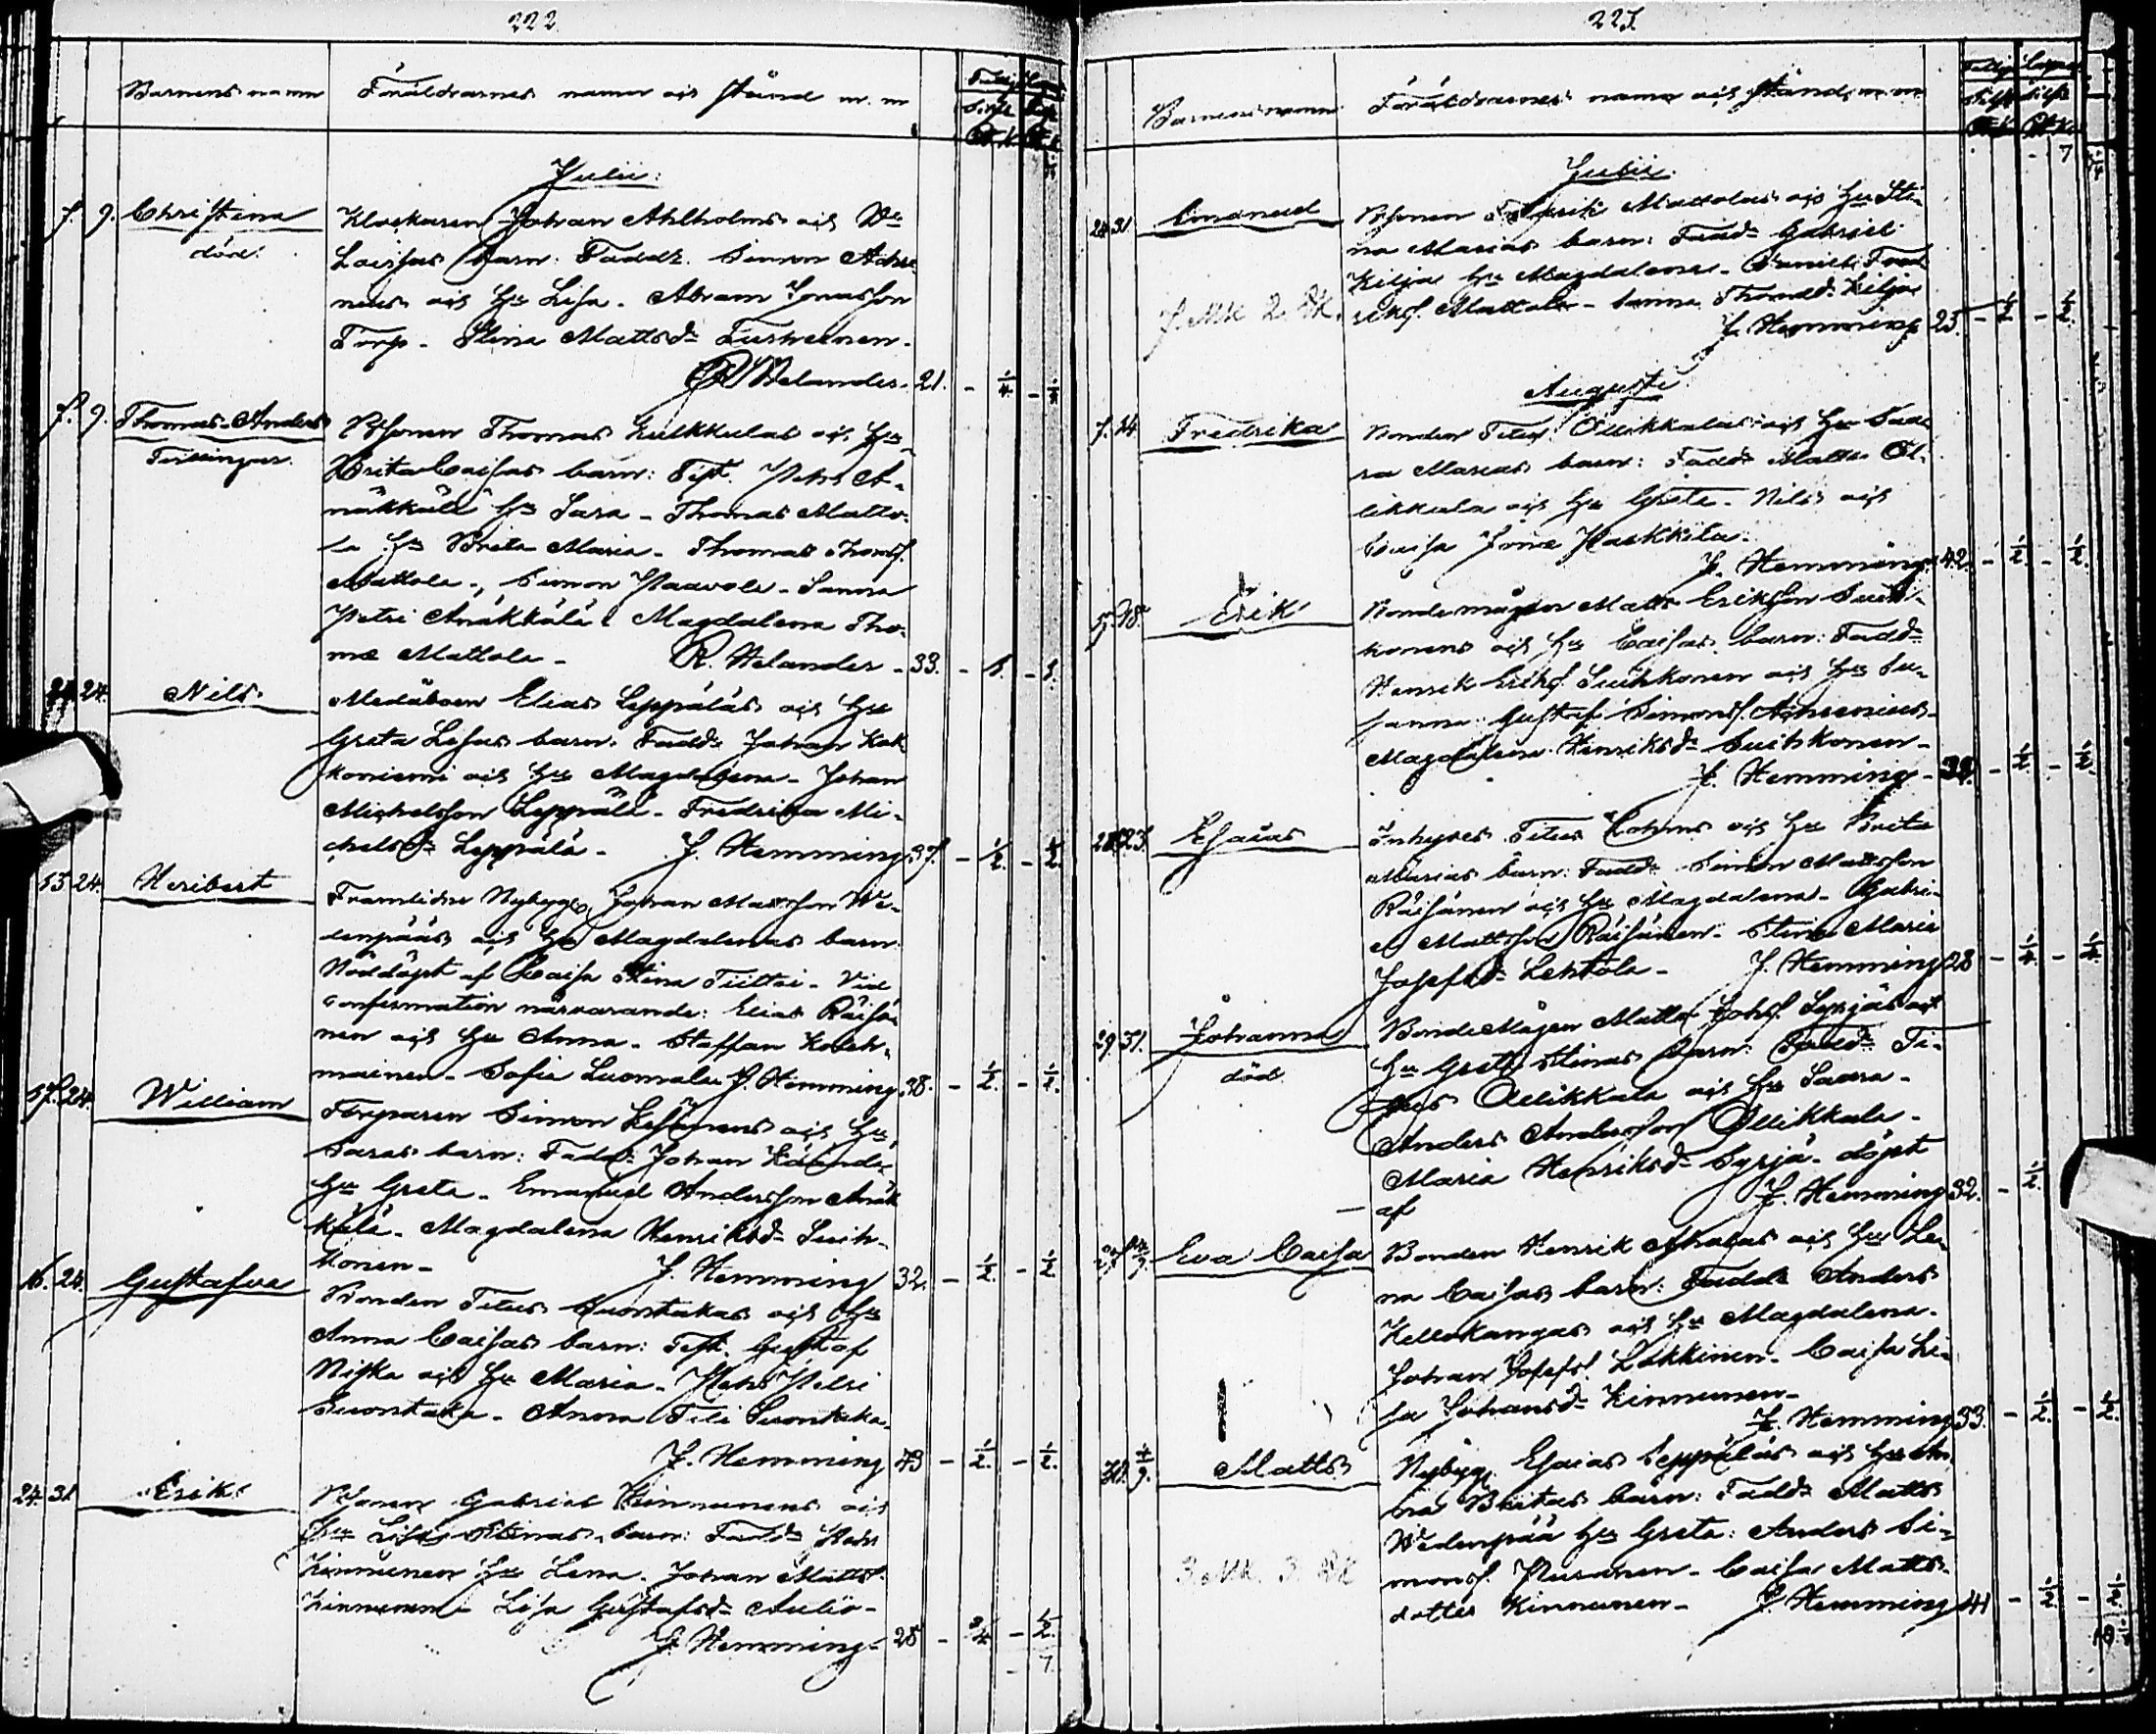 222
Barnens namn Föräldrarnes namn och stånd m. m
Julii:
7. 9. Christina Klockaren Johan Ahlholms och
död. Loisas barn: Faddr. Simon
och Hu Lisa. Abram Jonasson
Torp. Stina Mattsdr
R. Helander. 21. - 1/4 -
7. 9. Thomas-Anders Bonden Thomas Kulkkulas och Hu
Tvillingar. Brita Caisas barn: Test. Petr A-
näkkälä Hu Sara - Thomas Matto-
la Hu Brita Maria - Thomas Thomss.
Mattola -, Simon Paavola - Sanna
Petri Anäkkälä Magdalena Tho-
mæ Mattola - R. Helander - 33. - 1. - 1.
24. Nils Elias Leppäläs och Hu
Greta Lisas barn. Faddr Johan Kok
koniemi och Hu Magdalena - Johan
Michelsson Leppälä - Fredrika Mi-
chelsdr Leppälä - J. Hemming 37. - 1/2 - 1/2
13. 24. Heribert Framlidne Nybygg. Johan Matsson We-
denpääs och Hu Magdalenas barn.
Nöddöpt af Caisa Stina Tiittoi - Vid
confirmation närvarande: Elias Räisä-
nen och Hu Anna - Staffan Koleh-
mainen - Sofia Luomala J. Hemming 38. - 1/2. - 1/2.
17. 24. William Torparen Simon och Hu
Saras barn: Faddr Johan
Hu Greta - Emanuel Andersson Anäk
kälä - Magdalena Henriksdr Suih-
konen - J. Hemming 32. - 1/2. - 1/2.
16. 24. Gustafva Bonden Titus Suontakas och Hu
Anna Caisas barn: Test. Gustaf
Niska och Hu Maria - Petr Petri
Suontaka - Anna Titi Suontaka
J. Hemming 43 - 1/2. - 1/2.
24. 31. Erik Bonden Gabriel Kinnunens och
Hu Lisa Stinas barn: Faddr
Kinnunen Hu Lena. Johan Mattss.
Kinnunen - Lisa Gustafsdr Aulio -
J. Hemming - 28 - 3/4 - 1/2.
- 7.
223.
Barnens namn Föräldrarnes namn och stånd m. m
- 7
Julii.
24. 31. Emanuel Bonden Mattolas och Hu Sti-
na Marias barn: Faddr Gabriel
Kilja Hu Magdalena - Daniel
Mattola - Sanna Thomædr Kilja
J. Hemming 25. - 1/2 - 1/2.
Augusti
7. 14. Fredrika Bonden Titus Ollikkalas och Hu Saa
ra Marias barn: Faddr Matts Ol-
likkala och Hu Greta - Nils och
Caisa Paakkila.
J. Hemming. 42. - 1/2. - 1/2.
Erik Bondemågen Matts Eriksson Suih-
konens och Hu Caisas barn: Faddr
Henrik Erikss. Suihkonen och Hu Su-
sanna. Gustaf Simonss.
Magdalena Henriksdr Suihkonen -
J. Hemming - - 1/2. - 1/2.
23. Esaias Inhyses Titus och Hu Brita
Marias barn: Faddr Simon Mattsson
Räisänen och Hu Magdalena - Gabri-
el Mattsson Räisänen - Stina Maria
Josefsdr Lehtola - J. Hemming 28 - 1/4. - 1/4.
29. 31. Johanna Bondemågen Matts Johss. Syrjäs och
död. Hu Greta Stinas barn: Faddr Ti-
tus Ollikkala och Hu Saara -
Anders Andersson Ollikkala -
Maria Henriksdr Syrjä - döpt
af J. Hemming 32. - 1/2.
Eva Caisa Bonden Henrik Aholas och Hu Le-
na Caisas barn: Faddr Anders
Kellokangas och Hu Magdalena.
Johan Josefss. Lukkinen - Caisa Li-
sa Johansdr Kinnunen -
J. Hemming 33. - 1/2. - 1/2.
30. 4/9. Matts Nybygg. Esaias Seppäläs och Hu An
na Britas barn: Faddr Matts
Wedenpää Hu Greta: Anders Si-
monss. - Caisa Matts-
dotter Kinnunen - J. Hemming 41 - 1/2. - 1/2.